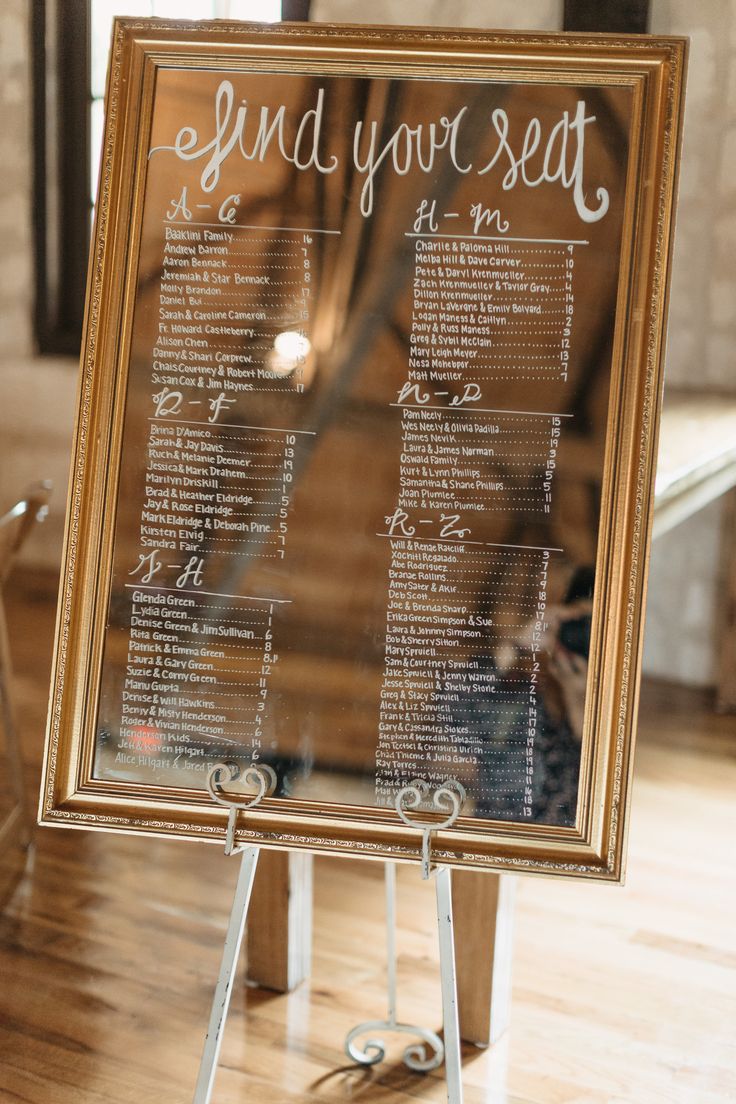 find your seat
A - C
Baaklini Family 16
Andrew Barron 7
Aaron Bennack 8
Jeremiah & Star Bennack 8
Holly Brandon
Daniel Bui
Sarah & Caroline Cameron
Fr. Howard Castleberry
Alison Chen
Danny & Shari Corprew
Chais Courtney & Robert Moore
Susan Cox & Jim Haynes
D - F
Brina D'Amico 10
Sarah & Jay Davis 13
Ruch & Melanie Deemer 19
Jessica & Mark Drahem
Marilyn Driskill
Brad & Heather Eldridge 5
Jay & Rose Eldridge 5
Mark Eldridge & Deborah Pine 5
Kirsten Elvig
Sandra Fair 7
G - H
Glenda Green 1
Lydia Green
Denise Green & Jim Sullivan 6
Rita Green
Patrick & Emma Green 8.11
Laura & Gary Green 12
Suzie & Corny Green
Manu Gupta 9
Denise & Will Hawkins 3
Benny & Misty Henderson 4
Roger & Vivian Henderson
Henderson Kids
Karen Hilgart
Alice Hilgart &
H - M
Charlie & Paloma Hill 9
Melba Hill & Dave Carver 10
Pete & Daryl Krenmueller 4
Zach Krenmueller & Taylor Gray 4
Dillon Krenmueller 14
Bryan LaVergne & Emily Bolyard 18
Logan Maness & Caitlyn 2
Polly & Russ Maness 3
Greg & Sybil McClain 12
Mary Leigh Meyer 13
Nesa Mohebpour 7
Matt Mueller 7
Pam Neely 15
Wes Neely & Olivia Padilla 15
James Nevik 15
Laura & James Norman
Oswald Family 3
Kurt & Lynn Phillips 5
Samantha & Shane Phillips 5
Joan Plumlee
Mike & Karen Plumlee 11
R - Z
Will & Renae Ratcliff 3
Xochitl Regalado 7
Abe Rodriguez
Branae Rollins
Amy Sater & AKIF
Deb Scott
Joe & Brenda Sharp
Erika Green Simpson & Sue
Laura & Johnny Simpson
Bob & Sherry Sitton
Mary Spruiell
Sam & Courtney Spruiell
Jake Spruiell & Jenny Warren
Jesse Spruiell & Shelby Stone 2
Greg & Stacy Spruiell
Alex & Liz Spruiell
Frank & Tricia Still
Gary & Cassandra Stokes
Stephen & Meredith Tabladillo
Jon Teetsel & Christina Ulrich
Chad Thieme & Julia Tran
Ray Torres
Jim & Elaine Wagner
13